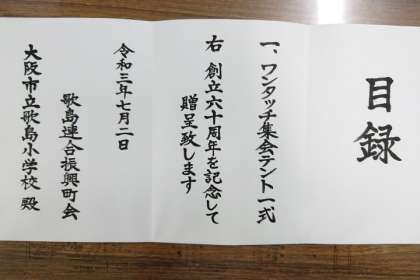 目録
一、ワンタッチ集会テント一式
右 創立六十周年を記念して
贈呈致します
令和三年七月二日
歌島連合振興町会
大阪市立歌島小学校 殿